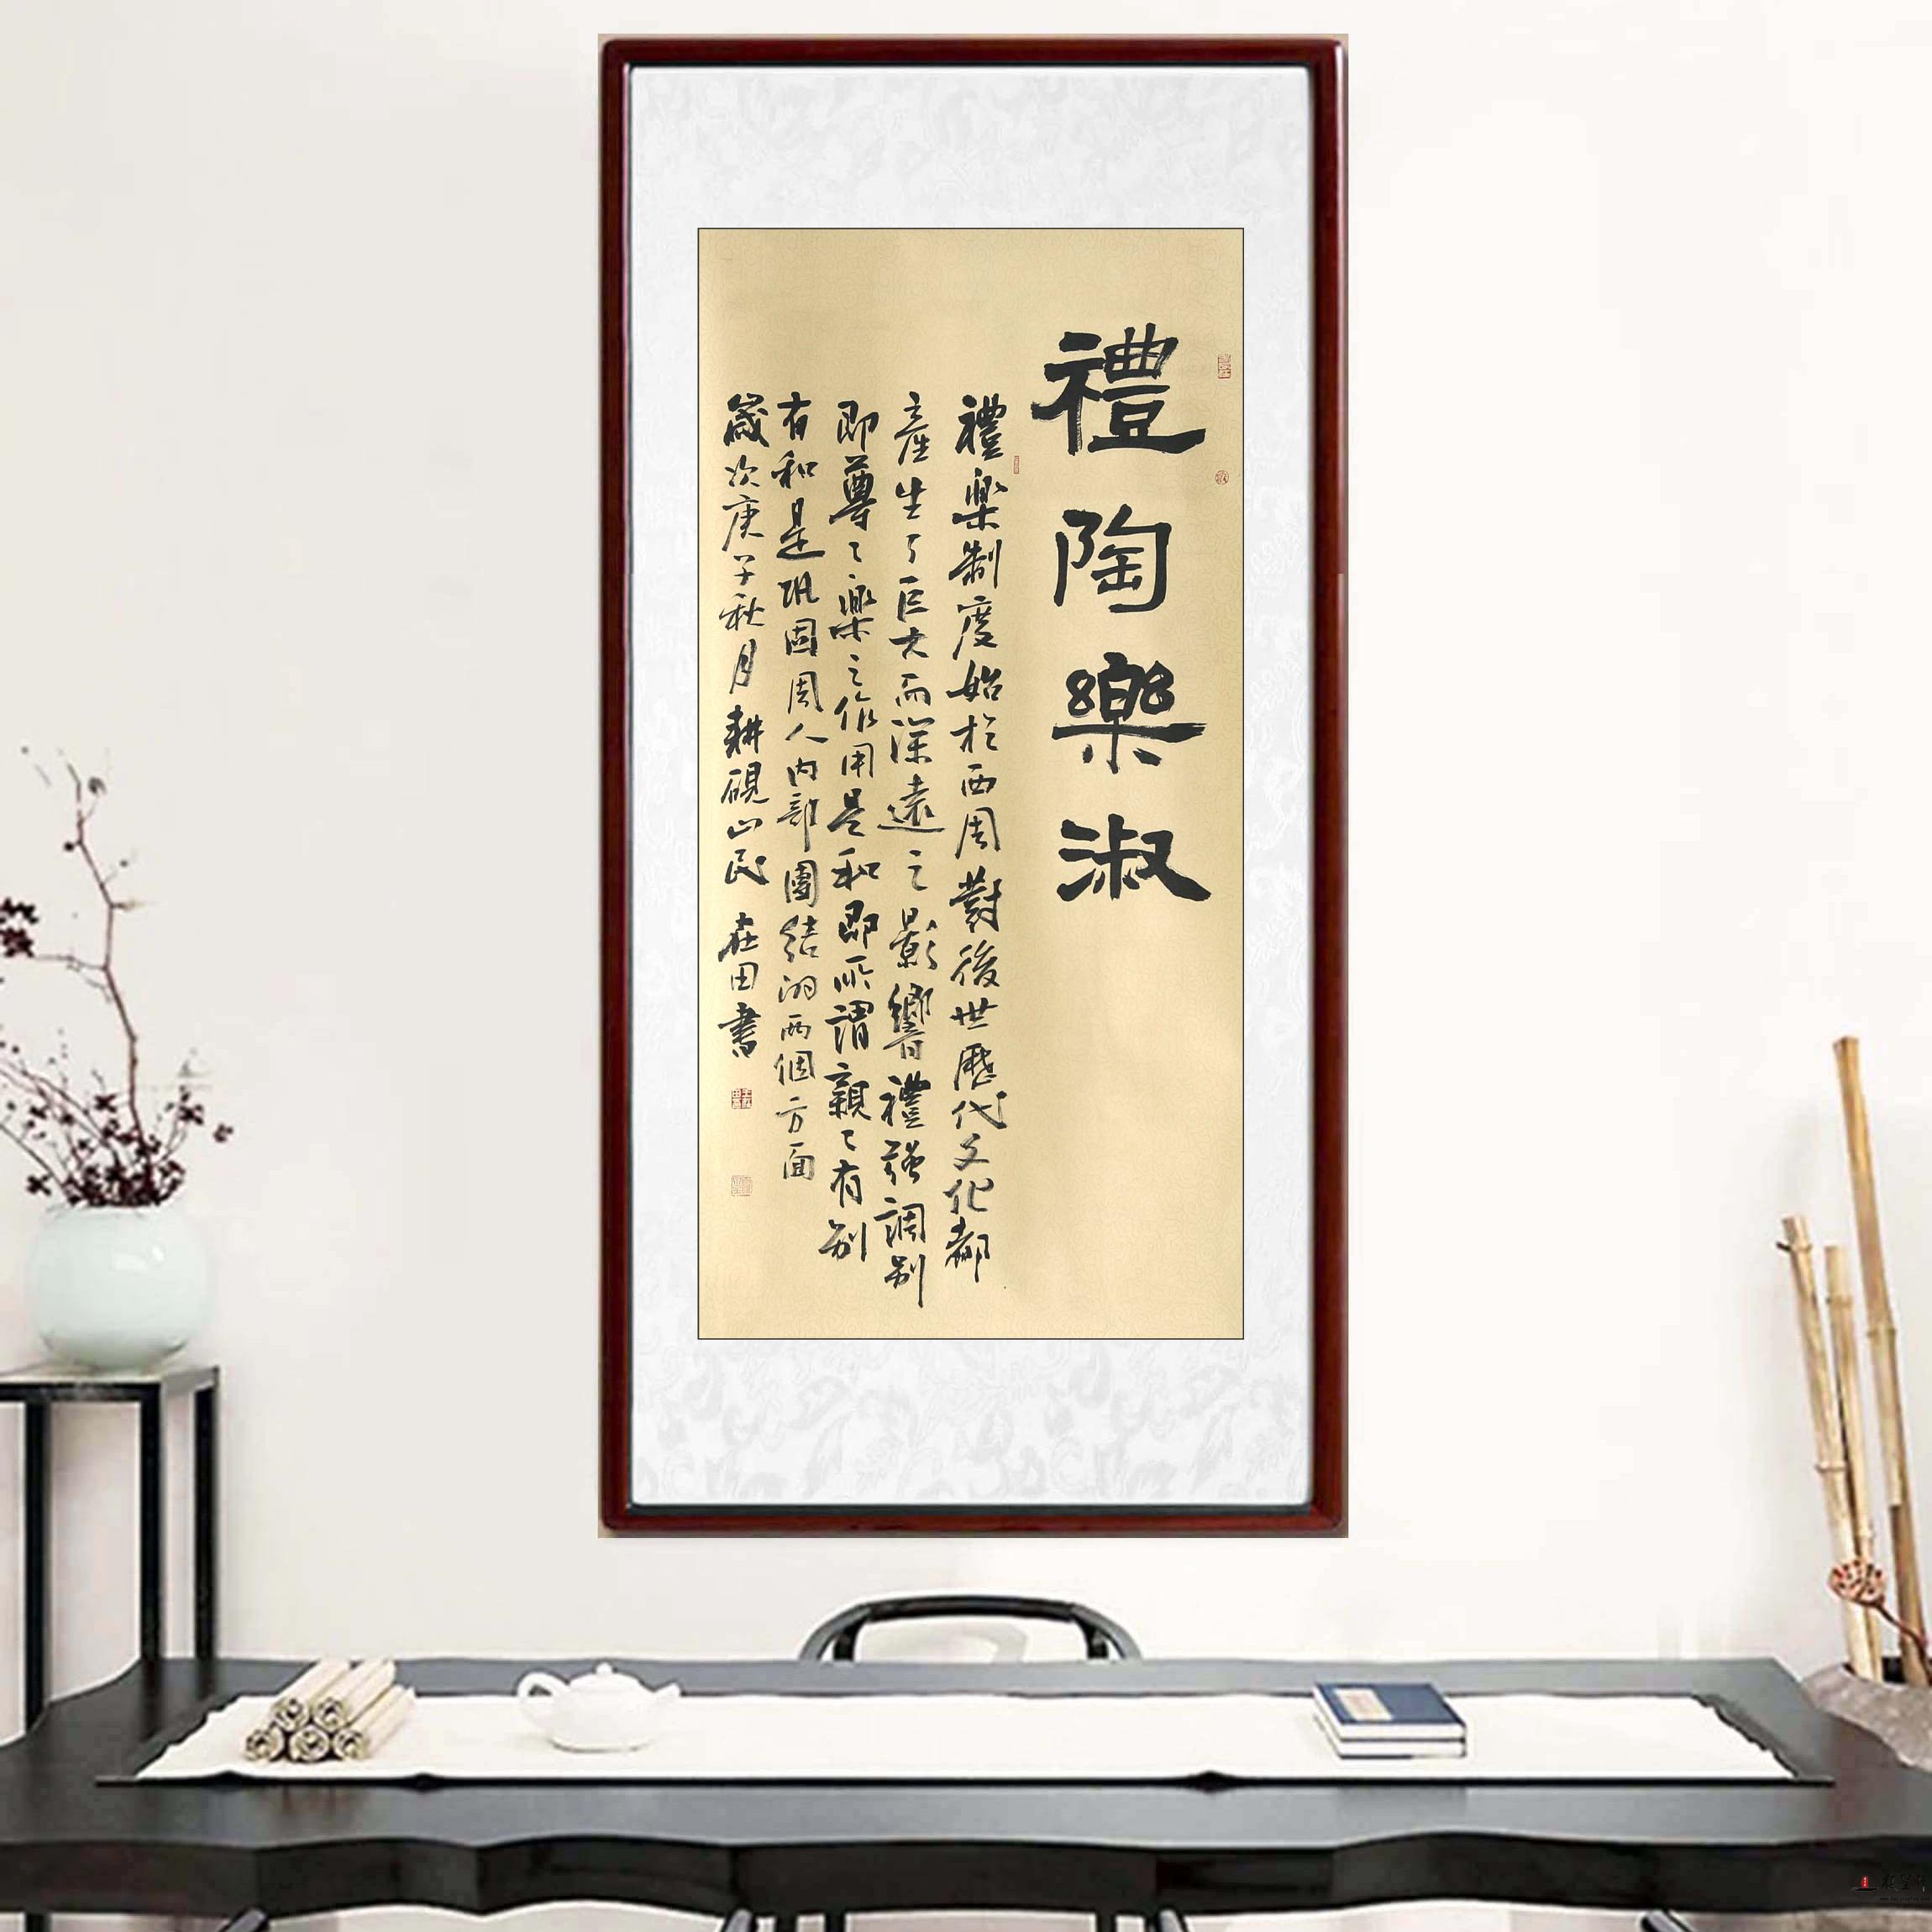 禮陶樂淑
禮樂制度始於西周對後世歷代文化都
產生了巨大而深遠之影響禮强調别
即尊〻樂之作用是和即所謂親〻有别
有和是巩固周人内部團結的兩個方面
歲次庚子秋月耕硯山民在田書